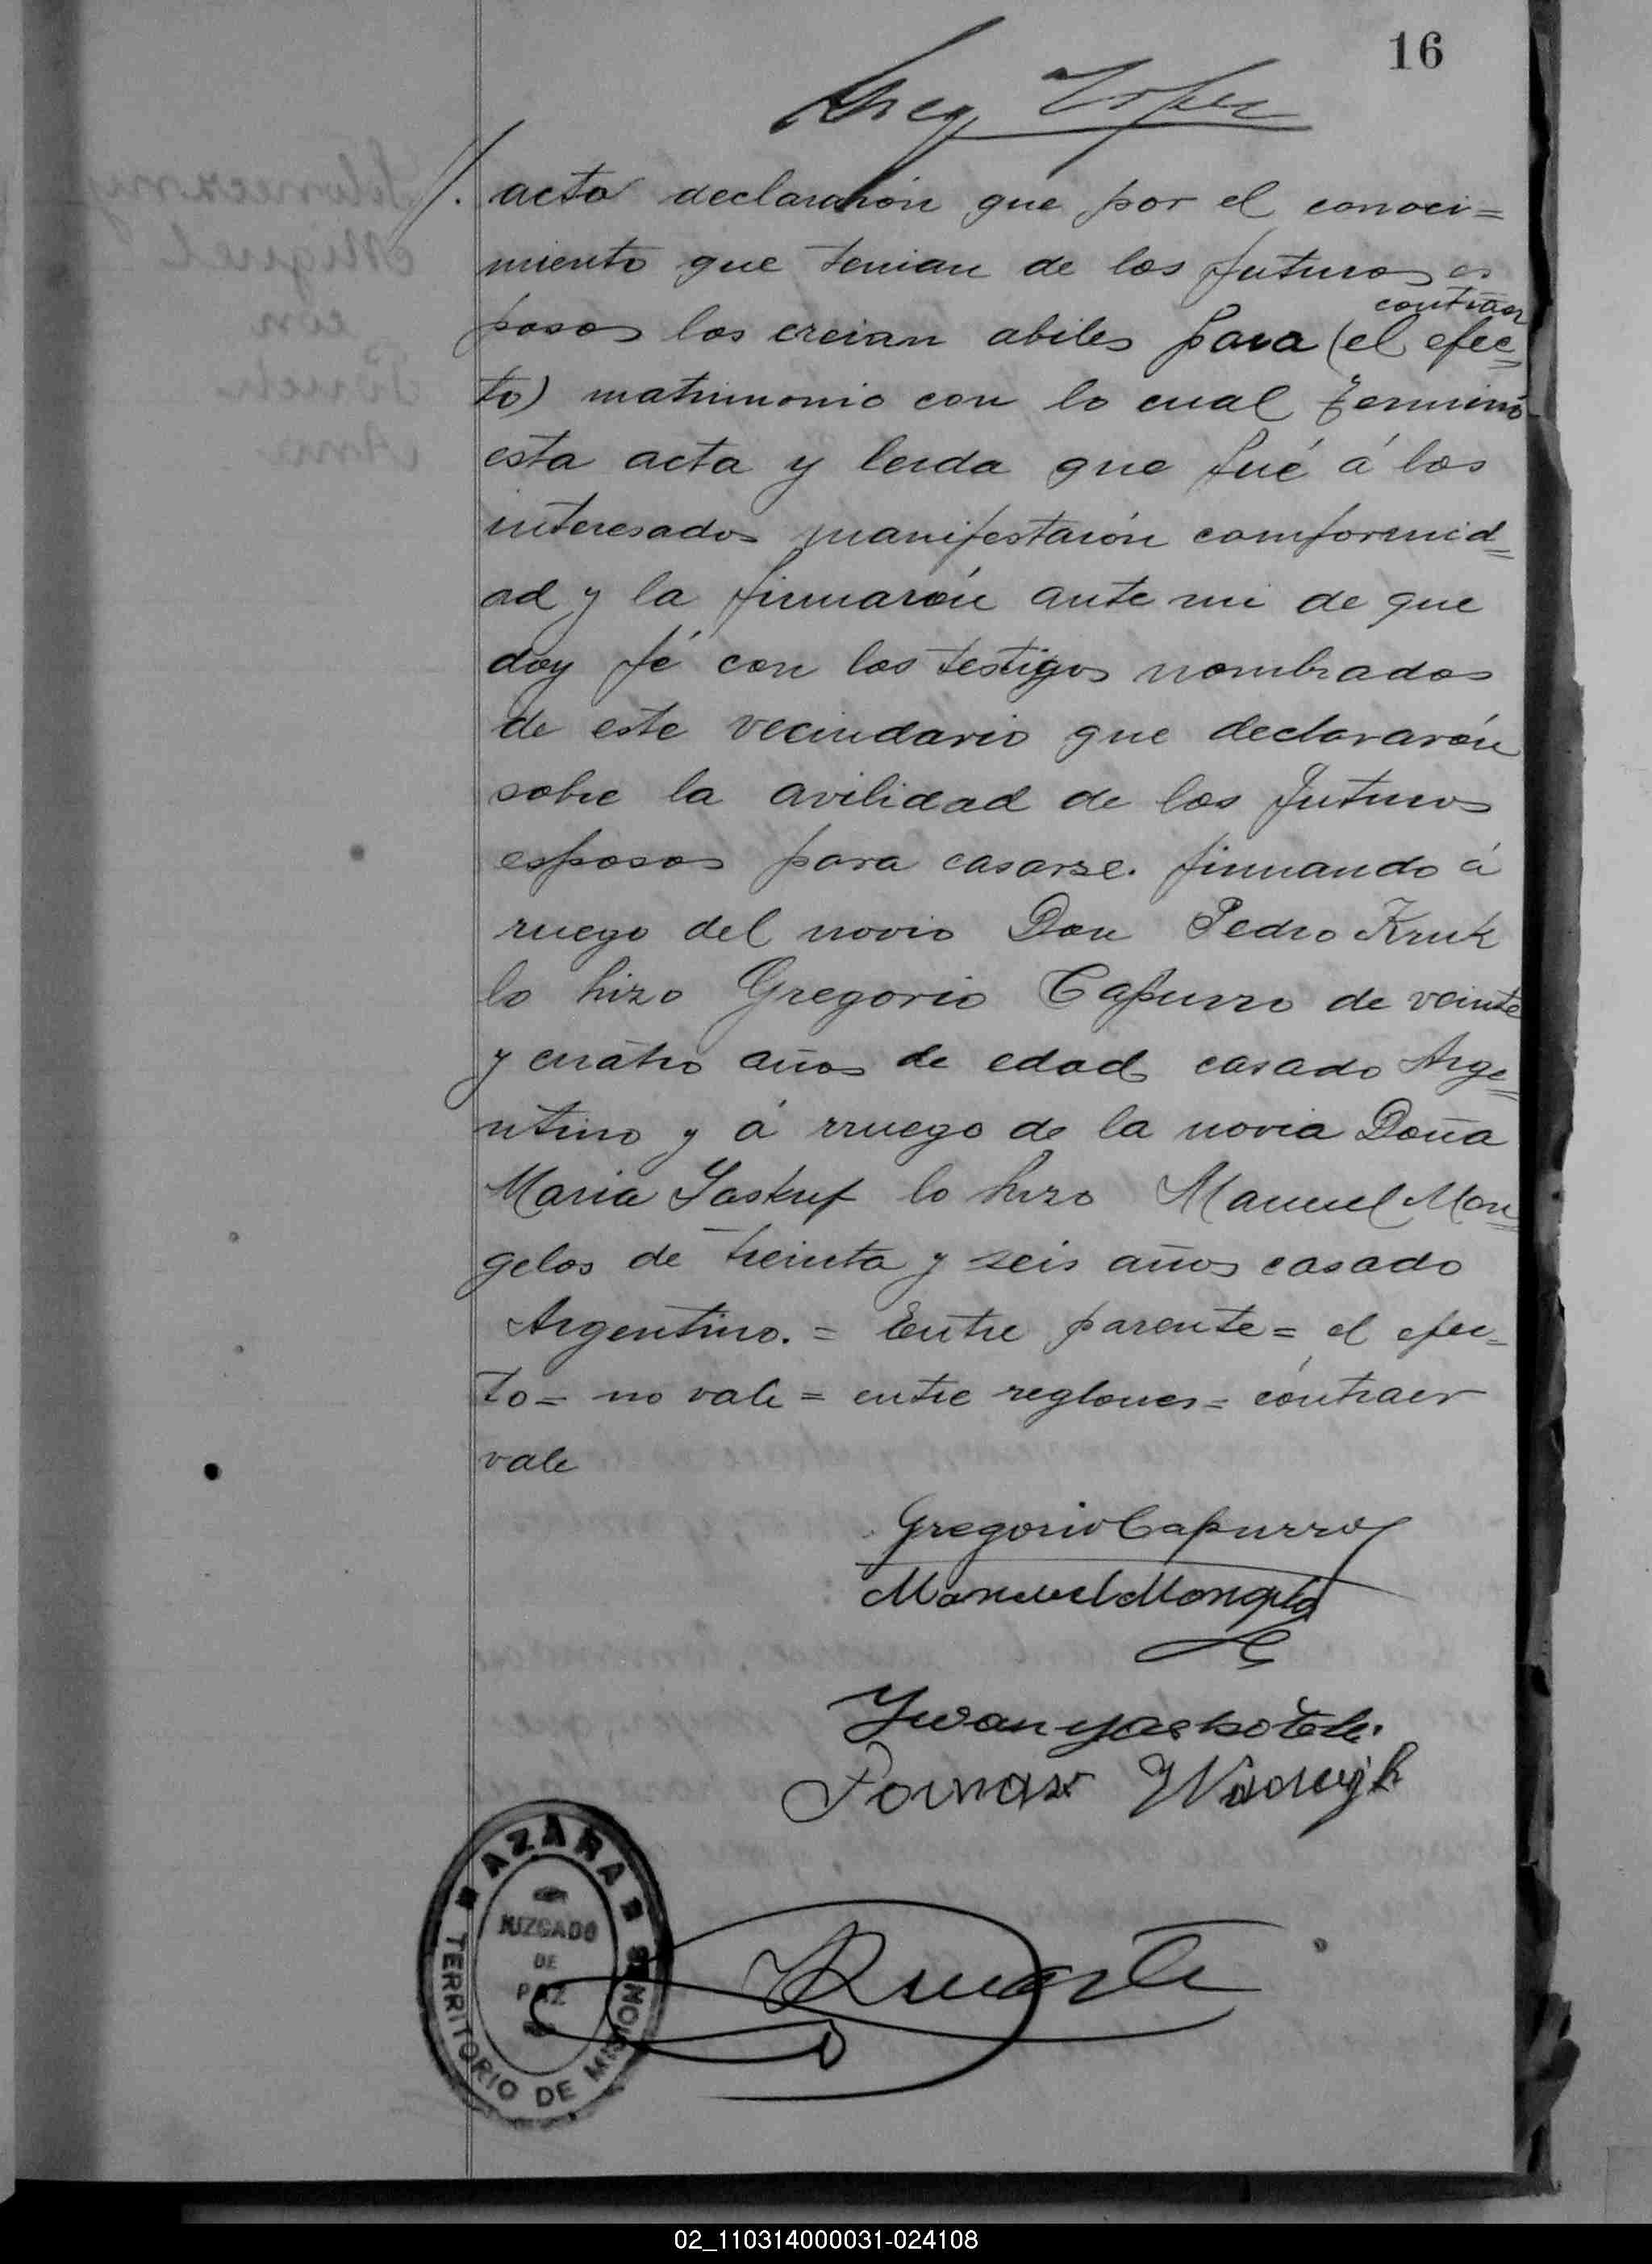 16
acto declararón que por el conoci=
miento que tenian de los futuros es
contraer
posos los creian abiles para (el efec=
to) matrimonio con lo cual terminó
esta acta y leida que fué á los
interesados manifestarón comformid=
ad y la firmarón ante mi de que
doy fé con los testigos nombrados
de este vecindario que declararón
sobre la avilidad de los futuros
esposos para casarse. firmando á
ruego del novio Don Pedro Kruk
lo hizo Gregorio Capurro de veinte
y cuatro años de edad casado Arge=
ntino y á rruego de la novia Doña
Maria lo hizo Manuel Mon=
gelos de treinta y seis años casado
Argentino. = Entre parente = el efec=
to = no vale = entre reglones = contraer
vale
Gregorio Capurro
Manuel Mongelos
AZARA
JUZGADO
DE
PAZ
TERRITORIO DE MISIONES
02_110314000031-024108